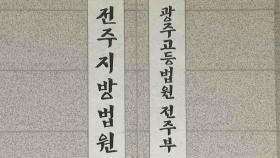 전주지방법원
광주고등법원 전주부